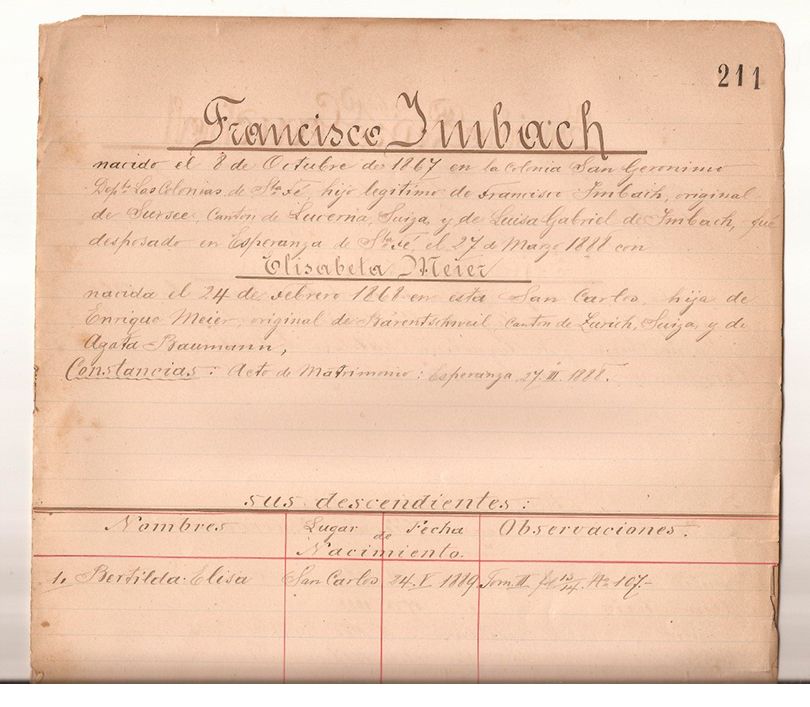 211
Francisco Imbach
nacido el 8 de Octubre de 1867 en la Colonia San Geronimo
Depto Las Colonias de Sta Fé, hijo legitimo de Francisco Imbach, original
de Sursee, Canton de Lucerna, Suiza, y de Luisa Gabriel de Imbach, fué
desposado en Esperanza de Sta Fé el 27 de Marzo 1888 con
Elisabeta Meier
nacida el 24 de Febrero 1868 en esta San Carlos, hija de
Enrique Meier, original de Bärentschweil, Canton de Zurich, Suiza, y de
Agata Baumann,
Constancias: Acto de Matrimonio: Esperanza 27. III. 1888.
sus descendientes:
Nombres Lugar de Fecha Observaciones.
Nacimiento.
1. Bertilda Elisa San Carlos 24. V. 1889 Tom. II No 107.-